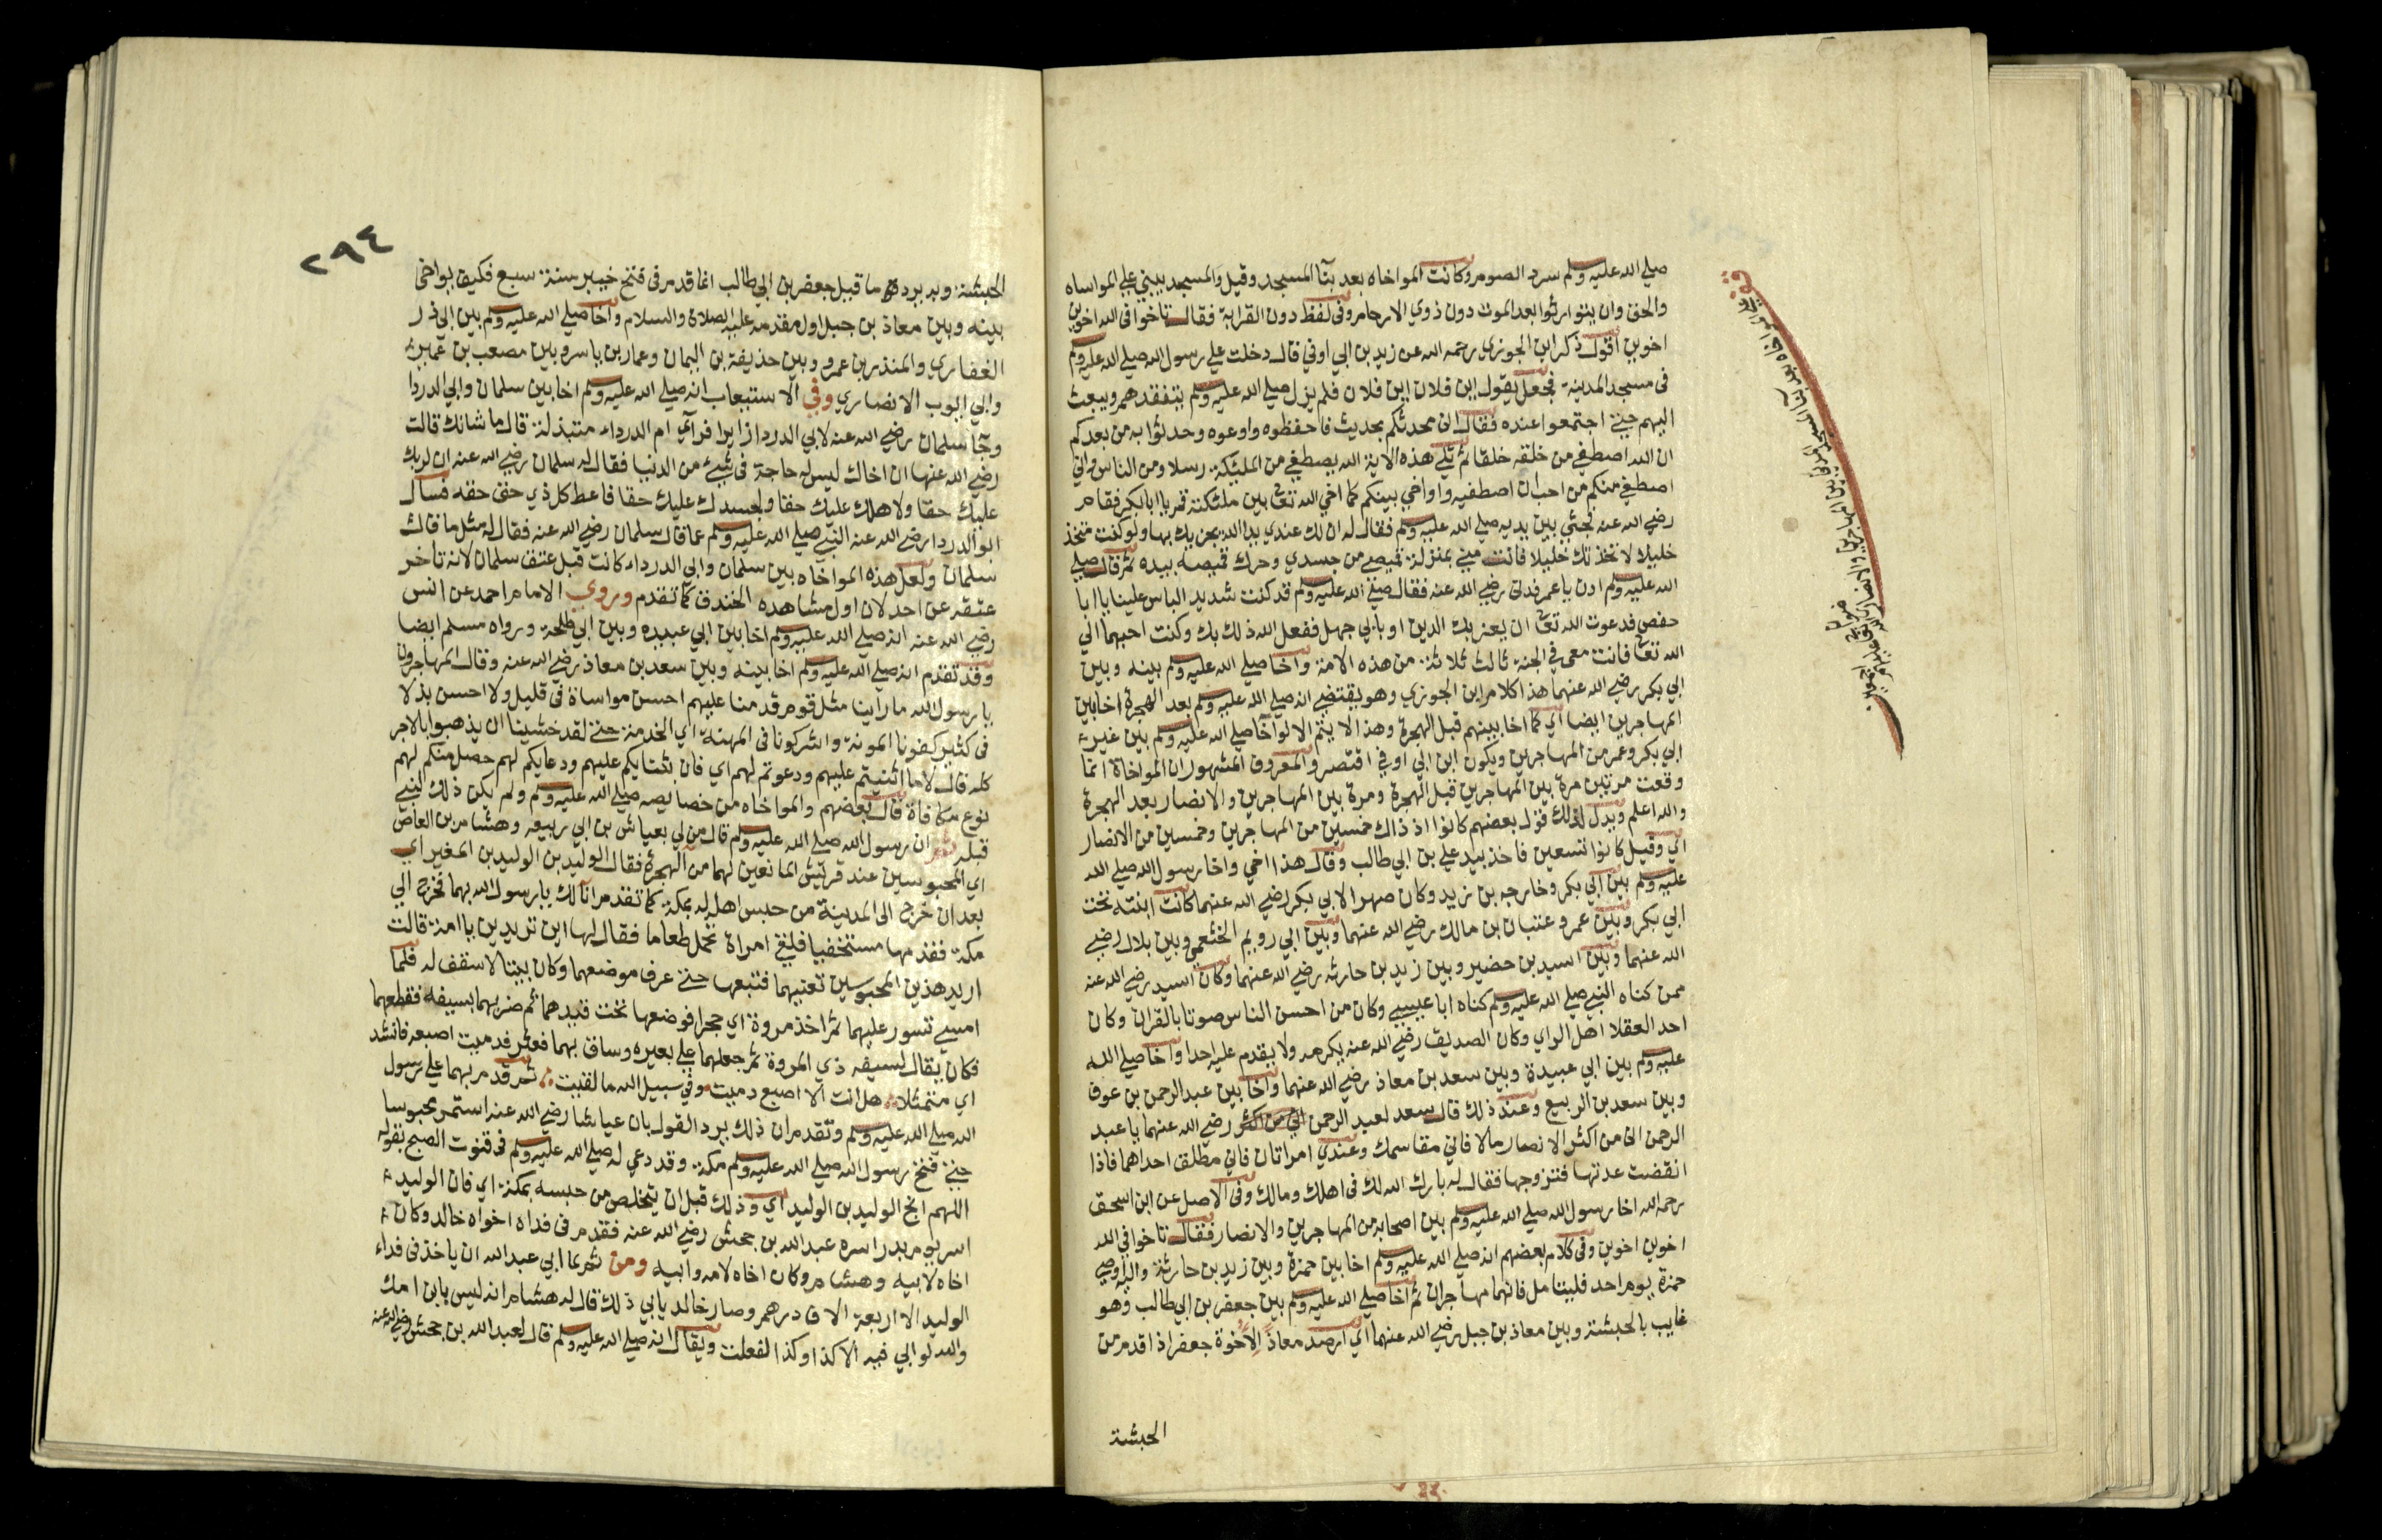 صلى الله عليه وسلم سرد الصوم وكانت المواخاه بعد بنآ المسجد وقيل والمسجد يبني على المواساه
والحق وان يتوارثوا بعد الموت دون ذوي الارحام وفى لفظ دون القرابة فقال تاخوا فى الله اخوين
اخوين اقول ذكر ابن الجوزي رحمه الله عن زيد بن ابي اوفي قال دخلت علي رسول الله صلي الله عليه وسلم
فى مسجد المدينة فجعل يقول اين فلان اين فلان فلم يزل صلي الله عليه وسلم يتفقدهم ويبعث
اليهم حتى اجتمعوا عنده فقال اني محدثكم بحديث فاحفظوه واوعوه وحدثوا به من بعدكم
ان الله اصطفي من خلقه خلقا ثم تلي هذه الاية الله يصطفي من المليكة رسلا ومن الناس واني
اصطفي منكم من احب ان اصطفيه واواخي بينكم كما اخي الله تعالى بين ملئكته قم يا ابا بكر فقام
رضي الله عنه فجثي بين يديه صلي الله عليه وسلم فقال له ان لك عندي يدا الله يجزيك بها ولو كنت متخذ
خليلا لاتخذتك خليلا فانت مني بمنزلة قميصي من جسدي وحرك قميصه بيده ثم قال صلي
الله عليه وسلم ادن يا عمر فدنى رضي الله عنه فقال صلي الله عليه وسلم قد كنت شديد الباس علينا يا ابا
حفص فدعوت الله تعالى ان يعز بك الدين او بابي جهل ففعل الله ذلك بك وكنت احبهما الي
الله تعالى فانت معي في الجنة ثالث ثلاثة من هذه الامة واخا صلي الله عليه وسلم بينه وبين
ابي بكر رضي الله عنهما هذا كلام ابن الجوزي وهو يقتضي انه صلي الله عليه وسلم بعد الهجرة اخا بين
المهاجرين ايضا اي كما اخا بينهم قبل الهجرة وهذا لا يتم الا لو اخا صلي الله عليه وسلم بين غير
ابي بكر وعمر من المهاجرين ويكون ابن ابي اوفي اقتصر والمعروف المشهور ان المواخاة انما
وقعت مرتين مرة بين المهاجرين قبل الهجرة ومرة بين المهاجرين والانصار بعد الهجرة
والله اعلم ويدل لذلك قول بعضهم كانوا اذ ذاك خمسين من المهاجرين وخمسين من الانصار
اي وقيل كانوا تسعين فاخذ بيد علي بن ابي طالب وقال هذا اخي واخا رسول الله صلي الله
عليه وسلم بين ابي بكر وخارجه بن زيد وكان صهرا لابي بكر رضي الله عنهما كانت ابنته تحت
ابي بكر وبين عمر وعتبان بن مالك رضي الله عنهما وبين ابي رويم الخثعمي وبين بلال رضي
الله عنهما وبين اسيد بن حضير وبين زيد بن حارثه رضي الله عنهما وكان اسيد رضي الله عنه
ممن كناه النبي صلي الله عليه وسلم كناه ابا عبيسي وكان من احسن الناس صوتا بالقران وكان
احد العقلا اهل الراي وكان الصديق رضي الله عنه يكرمه ولا يقدم عليه احدا واخا صلي الله
عليه وسلم بين ابي عبيدة وبين سعد بن معاذ رضي الله عنهما واخا بين عبد الرحمن بن عوف
وبين سعد بن الربيع وعند ذلك قال سعد لعبد الرحمن رضي الله عنهما يا عبد
الرحمن اني من اكثر الانصار مالا فاني مقاسمك وعندي امراتان فاني مطلق احداهما فاذا
انقضت عدتها فتزوجها فقال له بارك الله لك فى اهلك ومالك وفى الاصل عن ابن اسحق
رحمه الله اخا رسول الله صلي الله عليه وسلم بين اصحابه من المهاجرين والانصار فقال تاخوا في الله
اخوين اخوين وفى كلام بعضهم انه صلي الله عليه وسلم اخا بين حمزة وبين زيد بن حارثة واليه اوصي
حمزة يوم احد فليتامل فانهما مهاجران ثم اخا صلي الله عليه وسلم بين جعفر بن ابي طالب وهو
غايب بالحبشة وبين معاذ بن جبل رضي الله عنهما اي ارصد معاذًا لاخوة جعفر اذا قدم من
الحبشة
قف على المواخاه بعد بنآ المسجد الشريف بين المهاجرين والانصار
رضوان الله تعالى عليهم اجمعين
٢٩٤
الحبشة وبه يرد ما قيل جعفر بن ابي طالب انما قدم فى فتح خيبر سنة سبع فكيف يواخى
بينه وبين معاذ بن جبل اول مقدمه عليه الصلاة والسلام واخا صلي الله عليه وسلم بين ابي ذر
الغفاري والمنذر بن عمرو وبين حذيفة بن اليمان وعمار بن ياسر وبين مصعب بن عمير
وابي ايوب الانصاري وفي الاستيعاب انه صلي الله عليه وسلم اخا بين سلمان وابي الدردا
وجآ سلمان رضي الله عنه لابي الدردا زايرا فرآي ام الدرداء متبذلة قال ما شانك قالت
رضي الله عنها ان اخاك ليس له حاجة فى شيئ من الدنيا فقال له سلمان رضي الله عنه ان لربك
عليك حقا ولاهلك عليك حقا ولجسدك عليك حقا فاعط كل ذي حق حقه فسال
ابو الدردا رضي الله عنه النبي صلي الله عليه وسلم عما قال سلمان رضي الله عنه فقال له مثل ما قال
سلمان ولعل هذه المواخاه بين سلمان وابي الدرداء كانت قبل عتق سلمان لانه تاخر
عتقه عن احد لان اول مشاهده الخندق كما تقدم وروي الامام احمد عن انس
رضي الله عنه انه صلي الله عليه وسلم اخا بين ابي عبيده وبين ابي طلحة ورواه مسلم ايضا
وقد تقدم انه صلي الله عليه وسلم اخا بينه وبين سعد بن معاذ رضي الله عنه وقال المهاجرون
يا رسول الله ما راينا مثل قوم قدمنا عليهم احسن مواساة فى قليل ولا احسن بذلا
فى كثير كفونا المونة واشركونا فى المهنة اي الخدمة حتى لقد خشينا ان يذهبوا بالاجر
كله قال لا ما اثنيتم عليهم ودعوتم لهم اي فان ثنايكم عليهم ودعايكم لهم حصل منكم لهم
نوع مكافاة قال بعضهم والمواخاه من خصايصه صلي الله عليه وسلم ولم يكن ذلك لنبي
قبله ثم ان رسول الله صلي الله عليه وسلم قال من لي بعياش بن ابي ربيعه وهشام بن العاص
اي المحبوسين عند قريش المانعين لهما من الهجرة فقال الوليد بن الوليد بن المغيرة اي
بعد ان خرج الى المدينة من حبس اهله له بمكة كما تقدم انا لك يا رسول الله بهما فخرج الي
مكة فقدمها مستخفيا فلقي امراة تحمل طعاما فقال لها اين تريدين يا امة قالت
اريد هذين المحبوسين تعنيهما فتبعها حتى عرف موضعهما وكان بيتا لا سقف له فلما
امسي تسور عليهما ثم اخذ مروة اي حجرا فوضعها تحت قيدهما ثم ضربهما بسيفه فقطعهما
فكان يقال لسيفه ذي المروة ثم جعلهما على بعيره وساق بهما فعثر فدميت اصبعه فانشد
اي متمثلا هل انت الا اصبع دميت وفي سبيل الله ما لقيت ثم قدم بهما على رسول
الله صلي الله عليه وسلم وتقدم ان ذلك يرد القول بان عياشا رضي الله عنه استمر محبوسا
حتى فتح رسول الله صلي الله عليه وسلم مكة وقد دعي له صلي الله عليه وسلم فى قنوت الصبح بقوله
اللهم انج الوليد بن الوليد اي وذلك قبل ان يتخلص من حبسه بمكة اي فان الوليد
اسر يوم بدر اسره عبد الله بن جحش رضي الله عنه فقدم فى فداه اخواه خالد وكان
اخاه لابيه وهشام وكان اخاه لامه وابيه ومن ثم لما ابي عبد الله ان ياخذ فى فداء
الوليد الا اربعة الاف درهم وصار خالد يابي ذلك قال له هشام انه ليس بابن امك
والله لو ابي فيه الا كذا وكذا لفعلت ويقال انه صلي الله عليه وسلم قال لعبد الله بن جحش رضي الله عنه